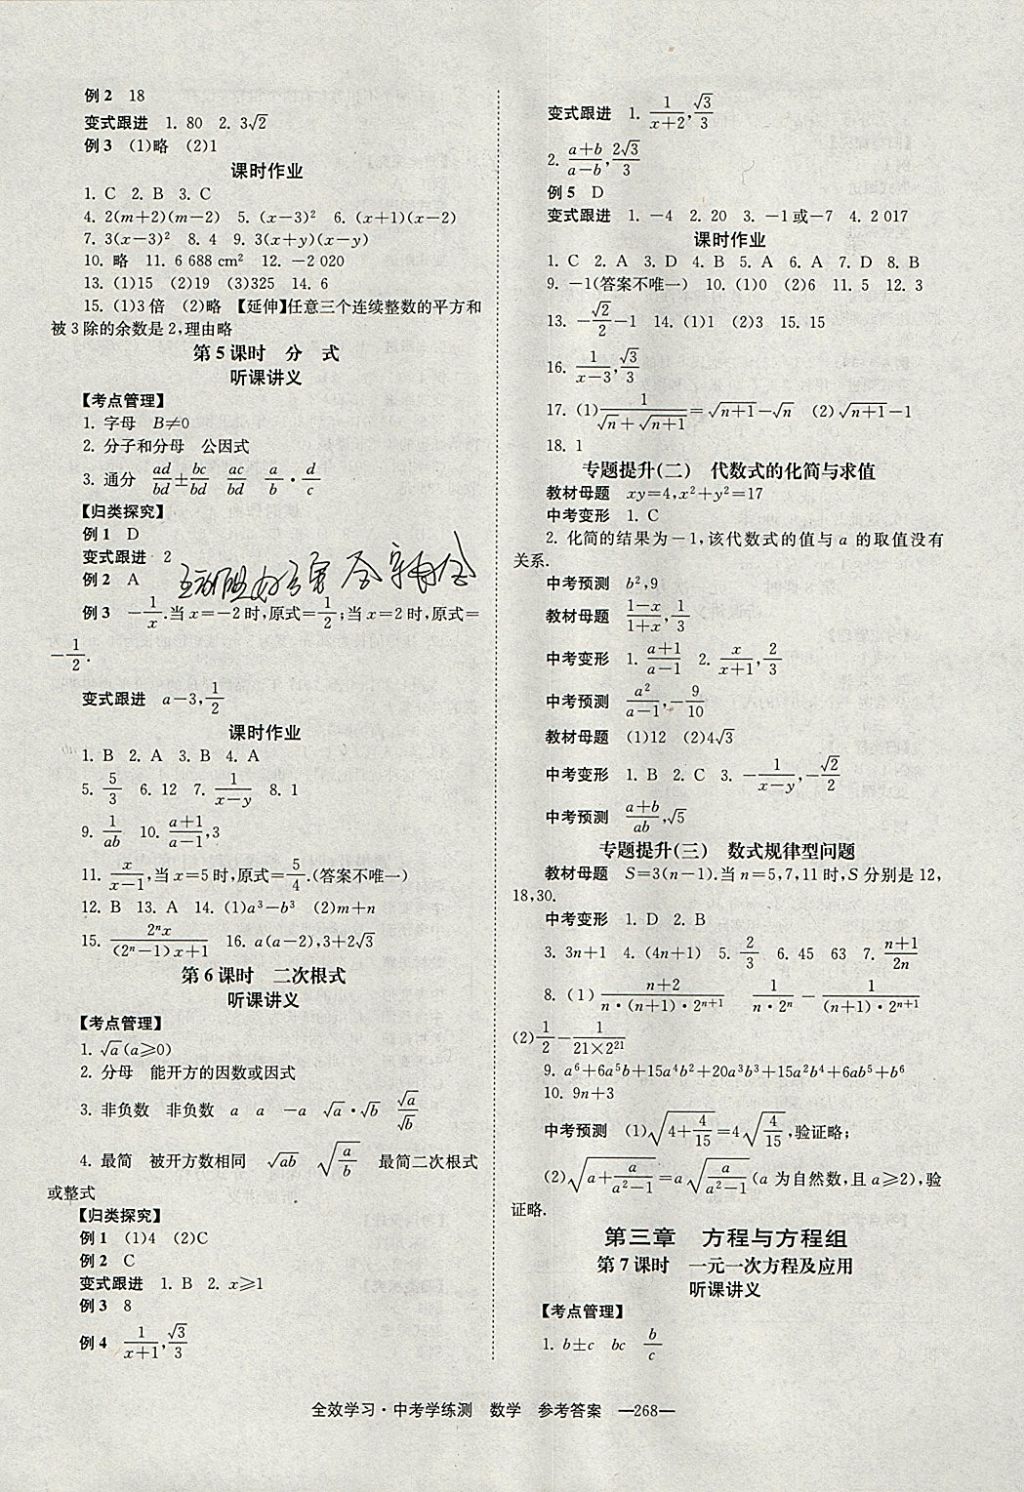 例2 18
变式跟进 1. 80 2. 3√2
例3 (1)略 (2)1
课时作业
1. C 2. B 3. C
4. 2(m+2)(m−2) 5. (x−3)² 6. (x+1)(x−2)
7. 3(x−3)² 8. 4 9. 3(x+y)(x−y)
10. 略 11. 6 688 cm² 12. −2 020
13. (1)15 (2)19 (3)325 14. 6
15. (1)3倍 (2)略 【延伸】任意三个连续整数的平方和
被3除的余数是2,理由略
第5课时 分 式
听课讲义
【考点管理】
1. 字母 B≠0
2. 分子和分母 公因式
3. 通分 ad/bd±bc/bd ac/bd a/b·d/c
【归类探究】
例1 D
变式跟进 2
例2 A
例3 −1/x.当x=−2时,原式=1/2;当x=2时,原式=
−1/2.
变式跟进 a−3,1/2
课时作业
1. B 2. A 3. B 4. A
5. 5/3 6. 12 7. 1/(x−y) 8. 1
9. 1/ab 10. (a+1)/(a−1),3
11. x/(x−1),当x=5时,原式=5/4.(答案不唯一)
12. B 13. A 14. (1)a³−b³ (2)m+n
15. 2ⁿx/((2ⁿ−1)x+1) 16. a(a−2),3+2√3
第6课时 二次根式
听课讲义
【考点管理】
1. √a(a≥0)
2. 分母 能开方的因数或因式
3. 非负数 非负数 a a −a √a·√b √a/√b
4. 最简 被开方数相同 √ab √(a/b) 最简二次根式
或整式
【归类探究】
例1 (1)4 (2)C
例2 C
变式跟进 1. B 2. x≥1
例3 8
例4 1/(x+1),√3/3
变式跟进 1. 1/(x+2),√3/3
2. (a+b)/(a−b),2√3/3
例5 D
变式跟进 1. −4 2. 20 3. −1或−7 4. 2 017
课时作业
1. C 2. A 3. D 4. B 5. A 6. A 7. D 8. B
9. −1(答案不唯一) 10. (1)0 (2)6 11. 5 12. 3
13. −√2/2−1 14. (1)1 (2)3 15. 15
16. 1/(x−3),√3/3
17. (1)1/(√n+√(n+1))=√(n+1)−√n (2)√(n+1)−1
18. 1
专题提升(二) 代数式的化简与求值
教材母题 xy=4,x²+y²=17
中考变形 1. C
2. 化简的结果为−1,该代数式的值与a的取值没有
关系.
中考预测 b²,9
教材母题 (1−x)/(1+x),1/3
中考变形 1. (a+1)/(a−1) 2. x/(x+1),2/3
中考预测 a²/(a−1),−9/10
教材母题 (1)12 (2)4√3
中考变形 1. B 2. C 3. −1/(x−y),−√2/2
中考预测 (a+b)/ab,√5
专题提升(三) 数式规律型问题
教材母题 S=3(n−1).当n=5,7,11时,S分别是12,
18,30.
中考变形 1. D 2. B
3. 3n+1 4. (4n+1) 5. 2/3 6. 45 63 7. (n+1)/2n
8. (1)(n+2)/(n·(n+1)·2ⁿ⁺¹) 1/(n·2ⁿ)−1/((n+1)·2ⁿ⁺¹)
(2)1/2−1/(21×2²¹)
9. a⁶+6a⁵b+15a⁴b²+20a³b³+15a²b⁴+6ab⁵+b⁶
10. 9n+3
中考预测 (1)√(4+4/15)=4√(4/15),验证略;
(2)√(a+a/(a²−1))=a√(a/(a²−1))(a为自然数,且a≥2),验
证略.
第三章 方程与方程组
第7课时 一元一次方程及应用
听课讲义
【考点管理】
1. b±c bc b/c
全效学习·中考学练测 数学 参考答案 —268—